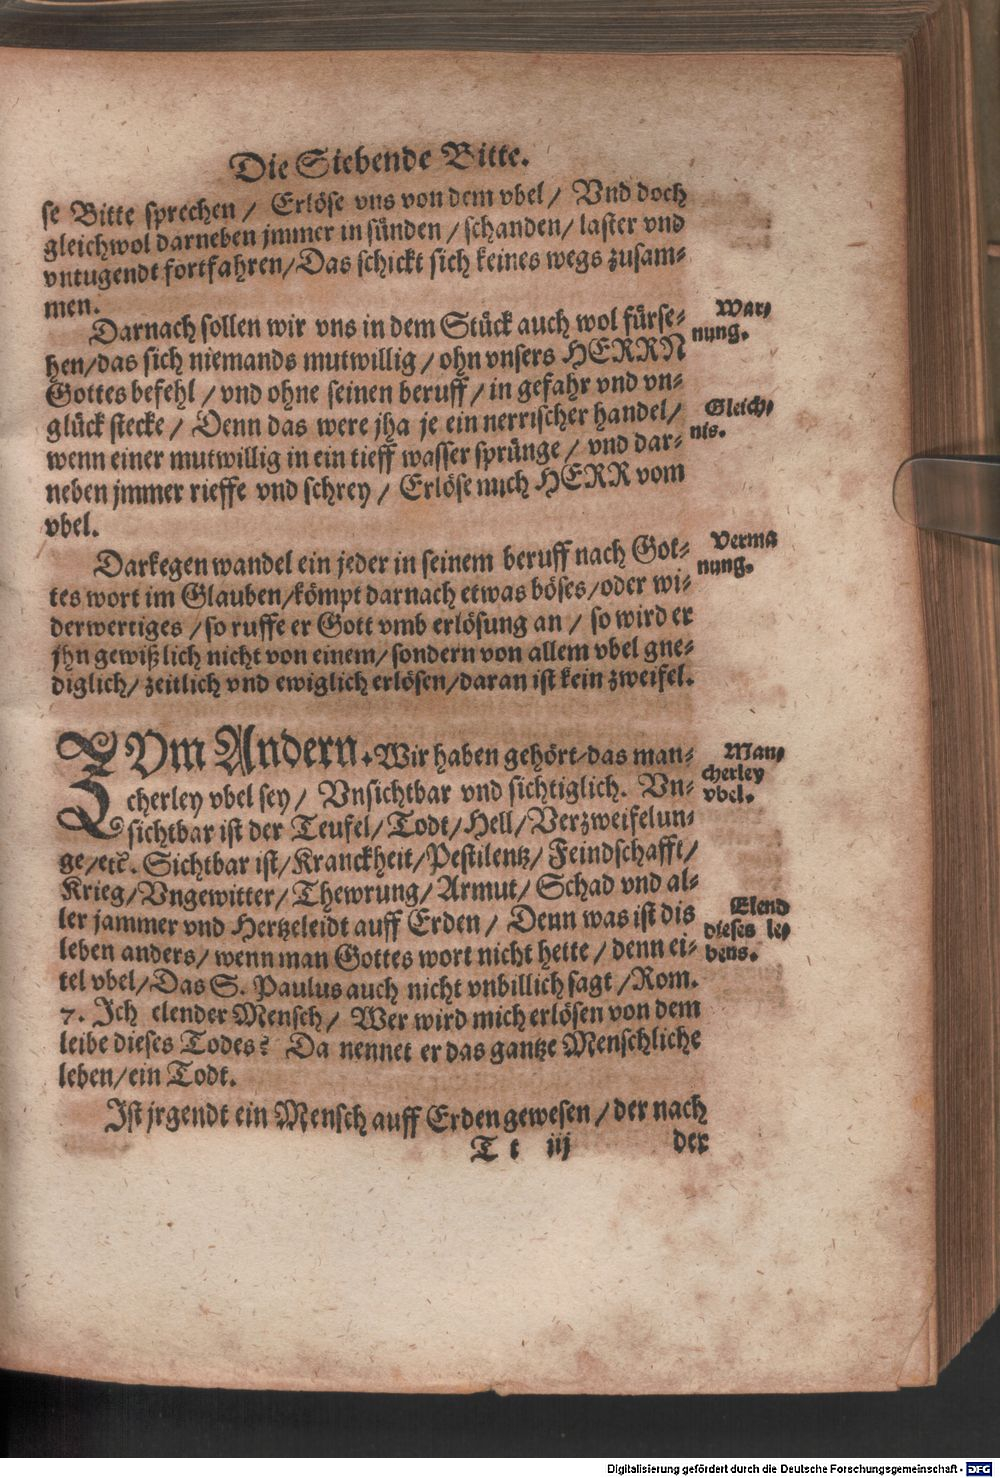 Die Siebende Bitte.
se Bitte sprechen / Erlöse vns von dem vbel / Vnd doch
gleichwol darneben jmmer in sünden / schanden / laster vnd
vntugendt fortfahren / Das schickt sich keines wegs zusam-
men.
Darnach sollen wir vns in dem Stück auch wol fürse-
hen / das sich niemands mutwillig / ohn vnsers HERRN
Gottes befehl / vnd ohne seinen beruff / in gefahr vnd vn-
glück stecke / Denn das were jha je ein nerrischer handel /
wenn einer mutwillig in ein tieff wasser sprünge / vnd dar-
neben jmmer rieffe vnd schrey / Erlöse mich HERR vom
vbel.
War-
nung.
Gleich-
nis.
Darkegen wandel ein jeder in seinem beruff nach Got-
tes wort im Glauben / kömpt darnach etwas böses / oder wi-
derwertiges / so ruffe er Gott vmb erlösung an / so wird er
jhn gewißlich nicht von einem / sondern von allem vbel gne-
diglich / zeitlich vnd ewiglich erlösen / daran ist kein zweifel.
Verma
nung.
ZVm Andern. Wir haben gehört / das man-
cherley vbel sey / Vnsichtbar vnd sichtiglich. Vn-
sichtbar ist der Teufel / Todt / Hell / Verzweifelun-
ge / etc. Sichtbar ist / Kranckheit / Pestilentz / Feindschafft /
Krieg / Vngewitter / Thewrung / Armut / Schad vnd al-
ler jammer vnd Hertzeleidt auff Erden / Denn was ist dis
leben anders / wenn man Gottes wort nicht hette / denn ei-
tel vbel / Das S. Paulus auch nicht vnbillich sagt / Rom.
7. Ich elender Mensch / Wer wird mich erlösen von dem
leibe dieses Todes? Da nennet er das gantze Menschliche
leben / ein Todt.
Man-
cherley
vbel.
Elend
dieses le-
bens.
Ist jrgendt ein Mensch auff Erden gewesen / der nach
T t iij
der
Digitalisierung gefördert durch die Deutsche Forschungsgemeinschaft - DFG